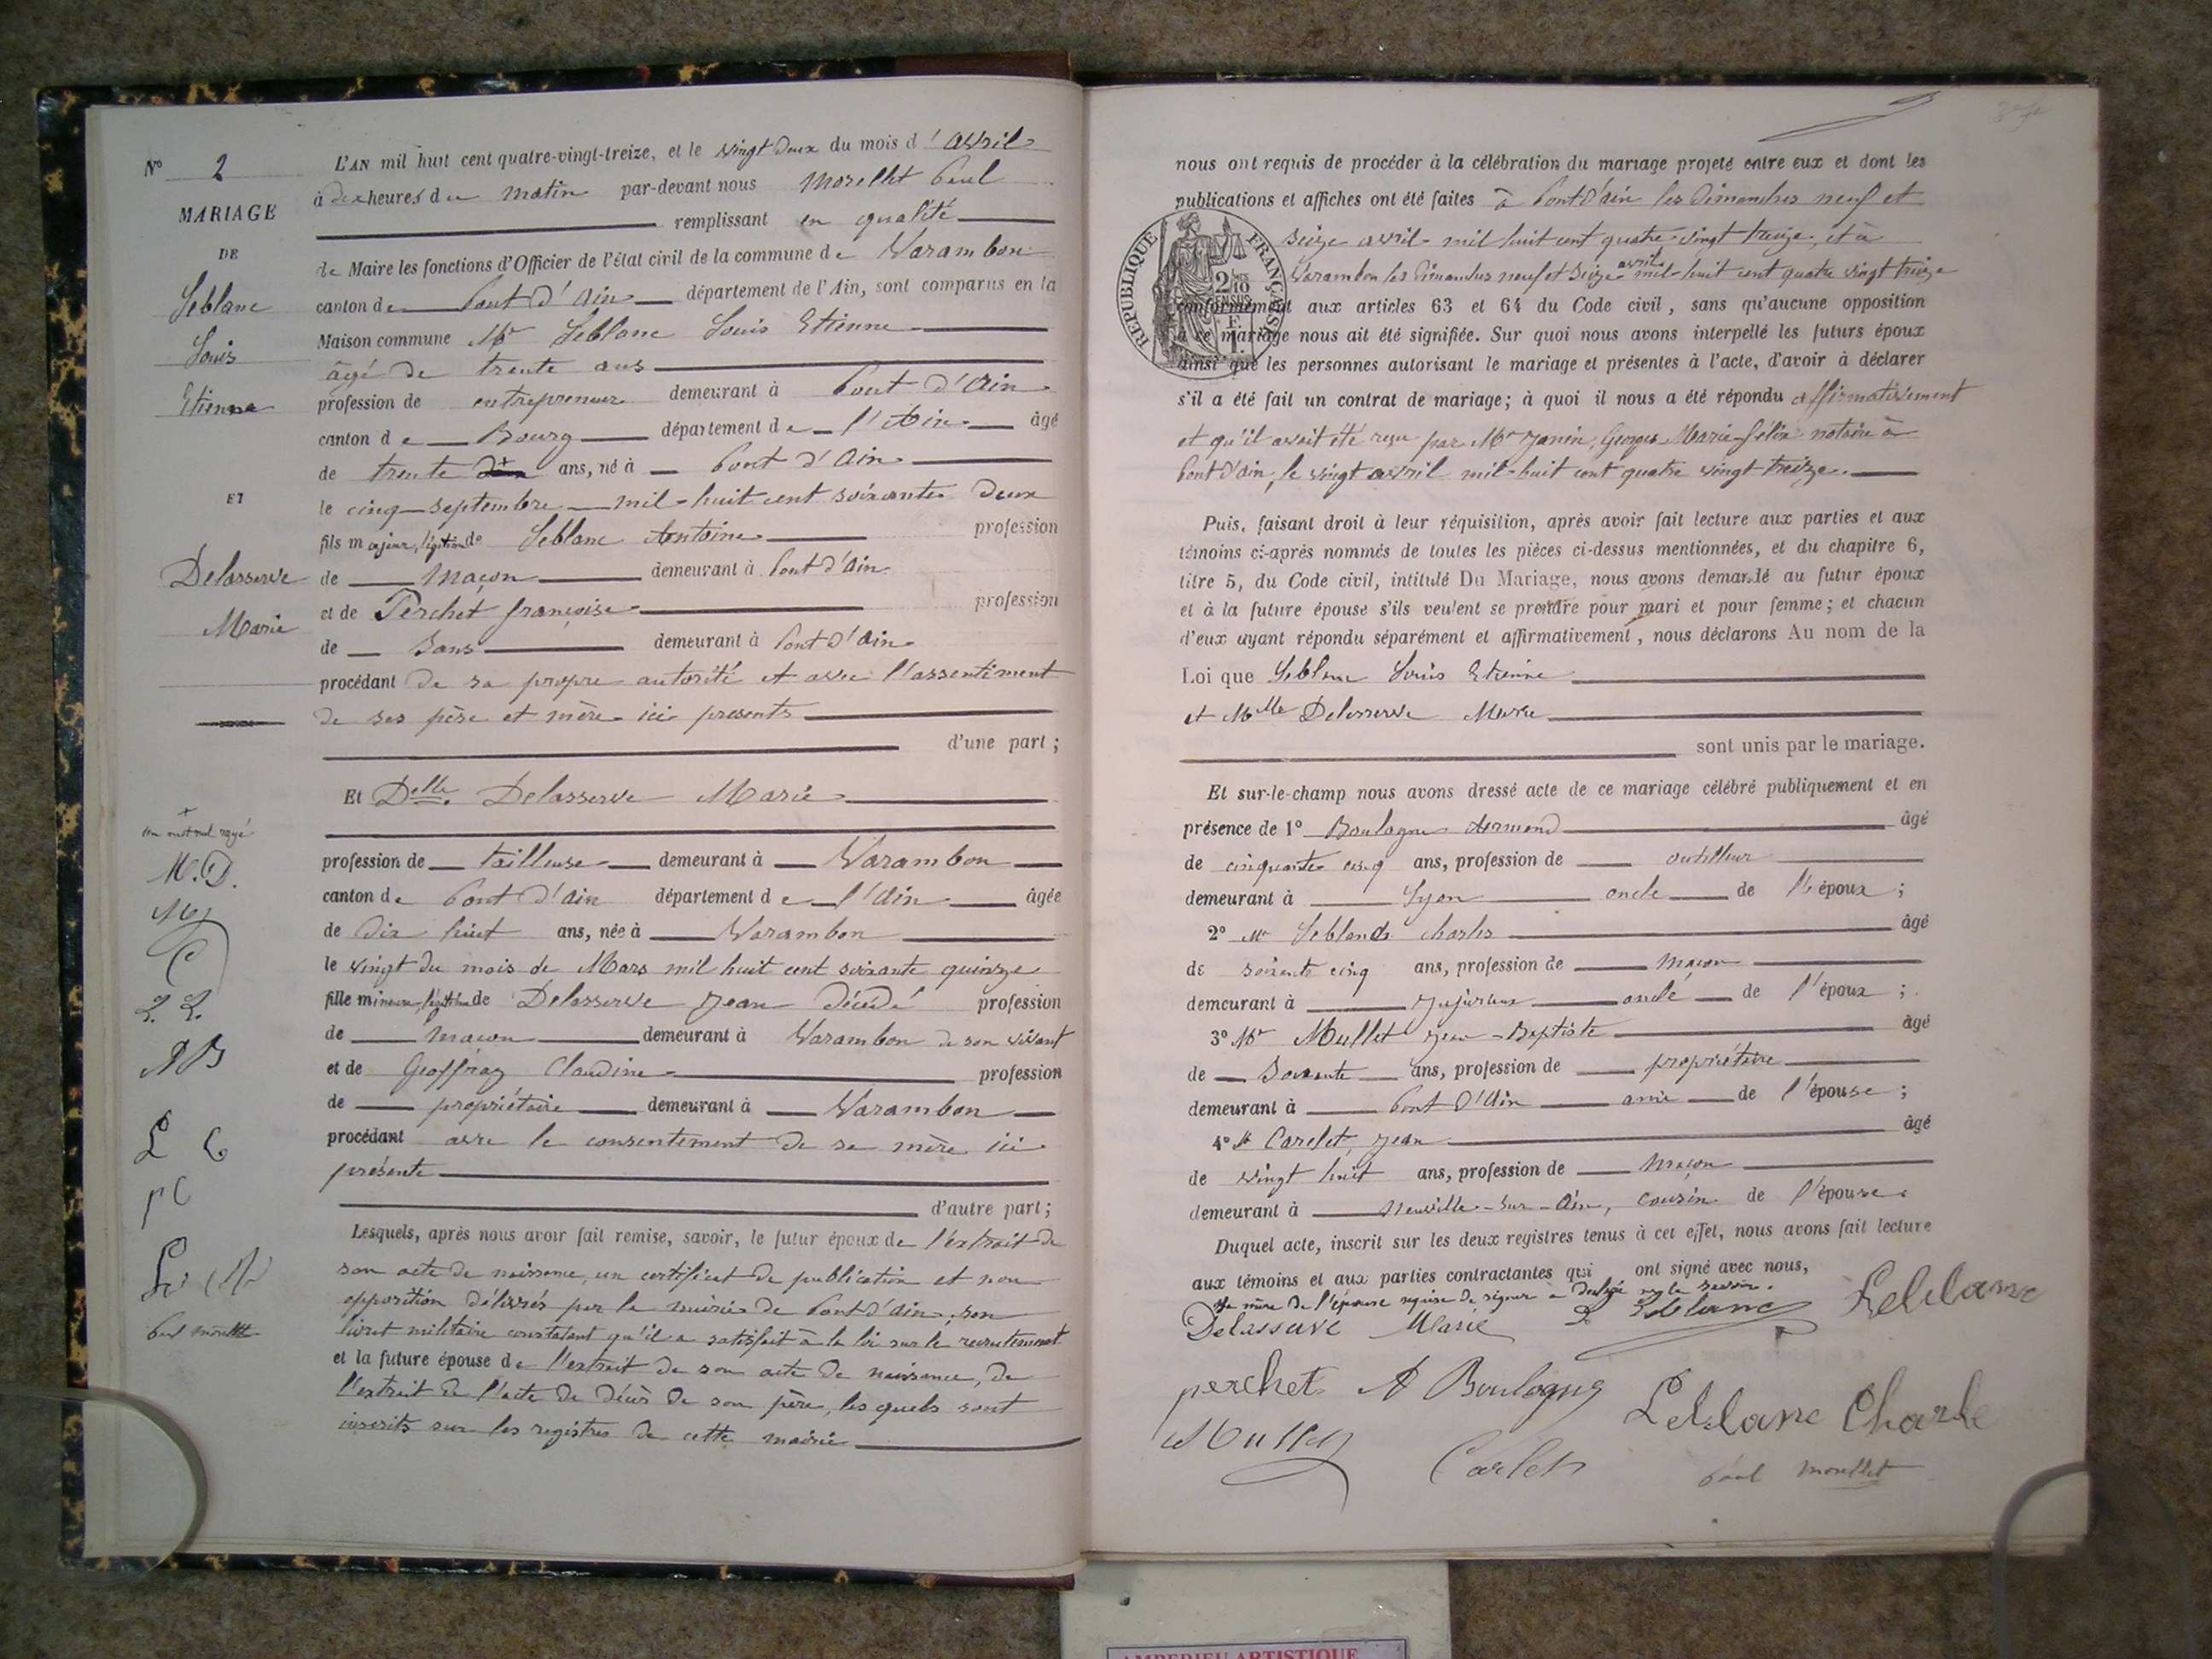 N° 2
MARIAGE
DE
Leblanc
Louis
Etienne
ET
Delasserve
Marie
un mot nul rayé
M. D.
L. L.
AB
L C
PC
Paul Morellet
L'AN mil huit cent quatre-vingt-treize, et le vingt deux du mois d'avril
à dix heures du matin par-devant nous Morellet Paul
remplissant en qualité
de Maire les fonctions d'Officier de l'état civil de la commune de Varambon
canton de Pont d'Ain département de l'Ain, sont comparus en la
Maison commune Mr Leblanc Louis Etienne
âgé de trente ans
profession de entrepreneur demeurant à Pont d'Ain
canton de Bourg département de l'Ain âgé
de trente ans, né à Pont d'Ain
le cinq septembre mil-huit cent soixante deux
fils majeur, légitime de Leblanc Antoine profession
de maçon demeurant à Pont d'Ain
et de Perchet françoise profession
de Sans demeurant à Pont d'Ain
procédant de sa propre autorité et avec l'assentiment
de ses père et mère ici présents
d'une part ;
Et Delle Delasserve Marie
profession de tailleuse demeurant à Varambon
canton de Pont d'Ain département de l'Ain âgée
de dix huit ans, née à Varambon
le vingt du mois de Mars mil huit cent soixante quinze
fille mineure, légitime de Delasserve Jean décédé profession
de maçon demeurant à Varambon de son vivant
et de Geoffray Claudine profession
de propriétaire demeurant à Varambon
procédant avec le consentement de sa mère ici
présente
d'autre part ;
Lesquels, après nous avoir fait remise, savoir, le futur époux de l'extrait de
son acte de naissance, un certificat de publication et non
opposition délivrés par la mairie de Pont d'Ain, son
livret militaire constatant qu'il a satisfait à la loi sur le recrutement
et la future épouse de l'extrait de son acte de naissance, de
l'extrait de l'acte de décès de son père, les quels sont
inscrits sur les registres de cette mairie
nous ont requis de procéder à la célébration du mariage projeté entre eux et dont les
publications et affiches ont été faites à Pont d'Ain les dimanches neuf et
seize avril mil huit cent quatre vingt treize, et à
Varambon les dimanches neuf et seize avril mil huit cent quatre vingt treize
REPUBLIQUE FRANÇAISE
2/10 EN SUS
1 F.
conformément aux articles 63 et 64 du Code civil, sans qu'aucune opposition
à ce mariage nous ait été signifiée. Sur quoi nous avons interpellé les futurs époux
ainsi que les personnes autorisant le mariage et présentes à l'acte, d'avoir à déclarer
s'il a été fait un contrat de mariage ; à quoi il nous a été répondu affirmativement
et qu'il avait été reçu par Mr Janin, Georges Marie félix notaire à
Pont d'Ain, le vingt avril mil-huit cent quatre vingt treize.
Puis, faisant droit à leur réquisition, après avoir fait lecture aux parties et aux
témoins ci-après nommés de toutes les pièces ci-dessus mentionnées, et du chapitre 6,
titre 5, du Code civil, intitulé Du Mariage, nous avons demandé au futur époux
et à la future épouse s'ils veulent se prendre pour mari et pour femme ; et chacun
d'eux ayant répondu séparément et affirmativement, nous déclarons Au nom de la
Loi que Leblanc Louis Etienne
et Mlle Delasserve Marie
sont unis par le mariage.
Et sur-le-champ nous avons dressé acte de ce mariage célébré publiquement et en
présence de 1° Boulogne Armand âgé
de cinquante cinq ans, profession de outilleur
demeurant à Lyon oncle de l'époux ;
2° Mr Leblanc charles âgé
de soixante cinq ans, profession de maçon
demeurant à Jujurieux oncle de l'époux ;
3° Mr Mullet Jean-Baptiste âgé
de Soixante ans, profession de propriétaire
demeurant à Pont d'Ain ami de l'épouse ;
4° Mr Carlet, Jean âgé
de vingt huit ans, profession de maçon
demeurant à Neuville-sur-Ain, cousin de l'épouse.
Duquel acte, inscrit sur les deux registres tenus à cet effet, nous avons fait lecture
aux témoins et aux parties contractantes qui ont signé avec nous,
la mère de l'épouse requise de signer a déclaré ne le savoir.
Delasserve Marie L. Leblanc Leblanc
perchet A Boulogne Leblanc Charle
Mullet Carlet Paul Morellet
AMBERIEU ARTISTIQUE